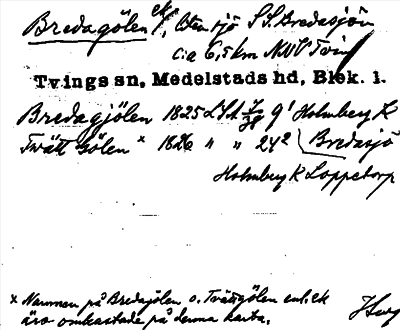 Bredagölen ek/, liten sjö S.S. Bredasjön
c:a 6,5 km NNV Tving
Tvings sn, Medelstads hd, Blek. l.
Bredagjölen 1825 LSA 9¹ Holmberg K
Tvätt Gölen x 1826 " " 24² Bredasjö
Holmberg K Loppetorp
x Namnen på Bredagölen o. Tvättgölen enl. ek
äro omkastade på denna karta.